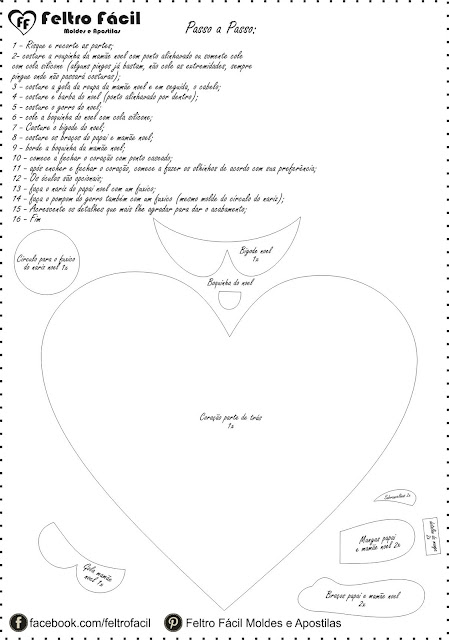 Feltro Fácil
Moldes e Apostilas
Passo a Passo:
1 - Risque e recorte as partes;
2- costure a roupinha da mamãe noel com ponto alinhavado ou somente cole
com cola silicone (alguns pingos já bastam, não cole as extremidades, sempre
pingue onde não passará costuras);
3 - costure a gola da roupa da mamãe noel e em seguida, o cabelo;
4 - costure e barba do noel (ponto alinhavado por dentro);
5 - costure o gorro do noel;
6 - cole a boquinha do noel com cola silicone;
7 - Costure o bigode do noel;
8 - costure os braços do papai e mamãe noel;
9 - borde a boquinha da mamãe noel;
10 - comece a fechar o coração com ponto caseado;
11 - após encher e fechar o coração, comece a fazer os olhinhos de acordo com sua preferência;
12 - Os óculos são opcionais;
13 - faça o nariz do papai noel com um fuxico;
14 - faça o pompom do gorro também com um fuxico (mesmo molde do círculo do nariz);
15 - Acrescente os detalhes que mais lhe agradar para dar o acabamento;
16 - Fim
Círculo para o fuxico
do nariz noel 1x
Bigode noel
1x
Boquinha do noel
Coração parte de trás
1x
Mangas papai
e mamãe noel 2x
Gola mamãe
noel 1x
Braços papai e mamãe noel
2x
facebook.com/feltrofacil
Feltro Fácil Moldes e Apostilas